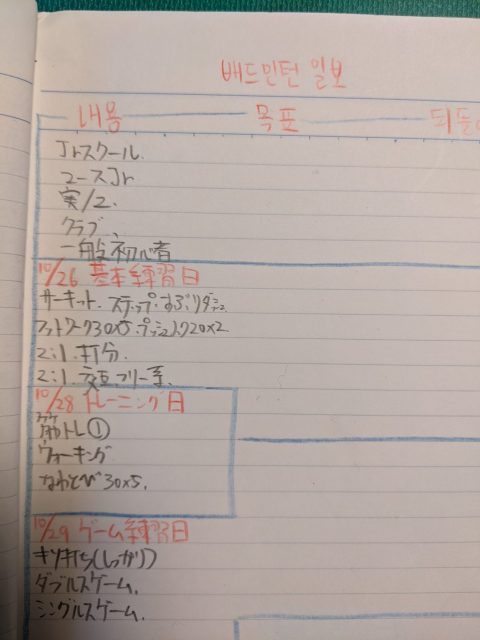 배드민턴 일보
내용 목표
Jrスクール.
ユースJr
実/2.
クラブ.
一般初心者
10/26 基本練習日
サーキット. ステップ. すぶりダッシュ
フットワーク30×5. プッシュ120×2
2:1. 打分.
2:1. 交互. フリー系.
10/28 トレーニング日
筋トレ①
ウォーキング
なわとび 30×5.
10/29 ゲーム練習日
キソ打ち(しっかり)
ダブルスゲーム.
シングルスゲーム.